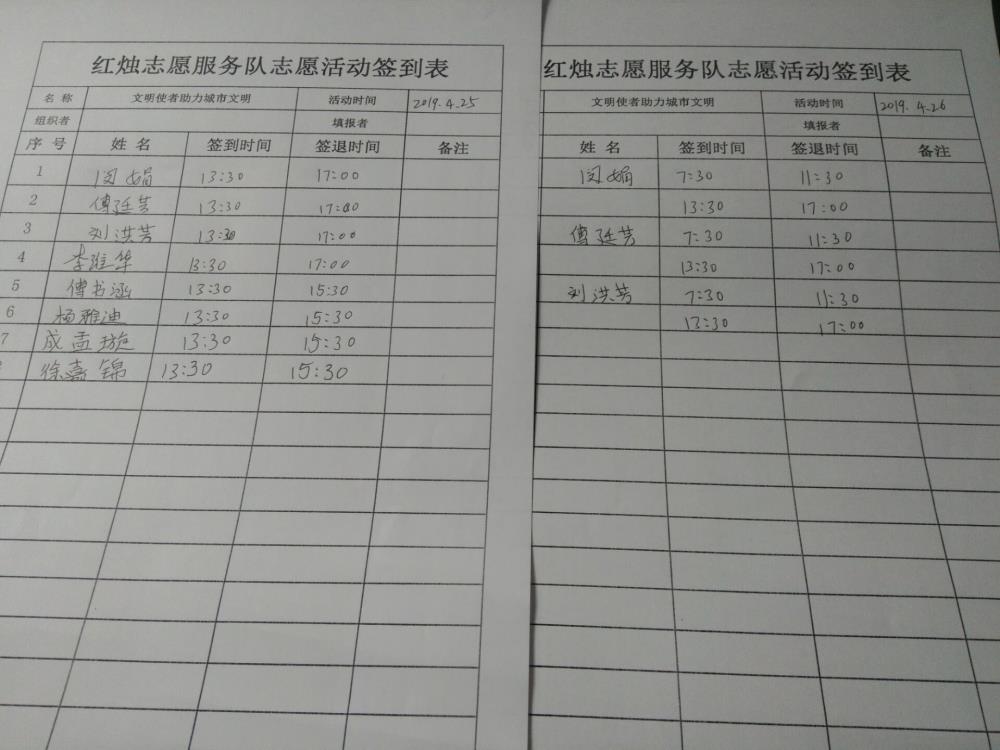 红烛志愿服务队志愿活动签到表
名 称 文明使者助力城市文明 活动时间 2019.4.25
组织者 填报者
序 号 姓 名 签到时间 签退时间 备注
1 闵娟 13:30 17:00
2 傅廷芳 13:30 17:00
3 刘洪芳 13:30 17:00
4 李维华 13:30 17:00
5 傅书涵 13:30 15:30
6 杨雅迪 13:30 15:30
7 成孟璇 13:30 15:30
徐嘉锦 13:30 15:30
红烛志愿服务队志愿活动签到表
文明使者助力城市文明 活动时间 2019.4.26
填报者
姓 名 签到时间 签退时间 备注
闵娟 7:30 11:30
13:30 17:00
傅廷芳 7:30 11:30
13:30 17:00
刘洪芳 7:30 11:30
13:30 17:00